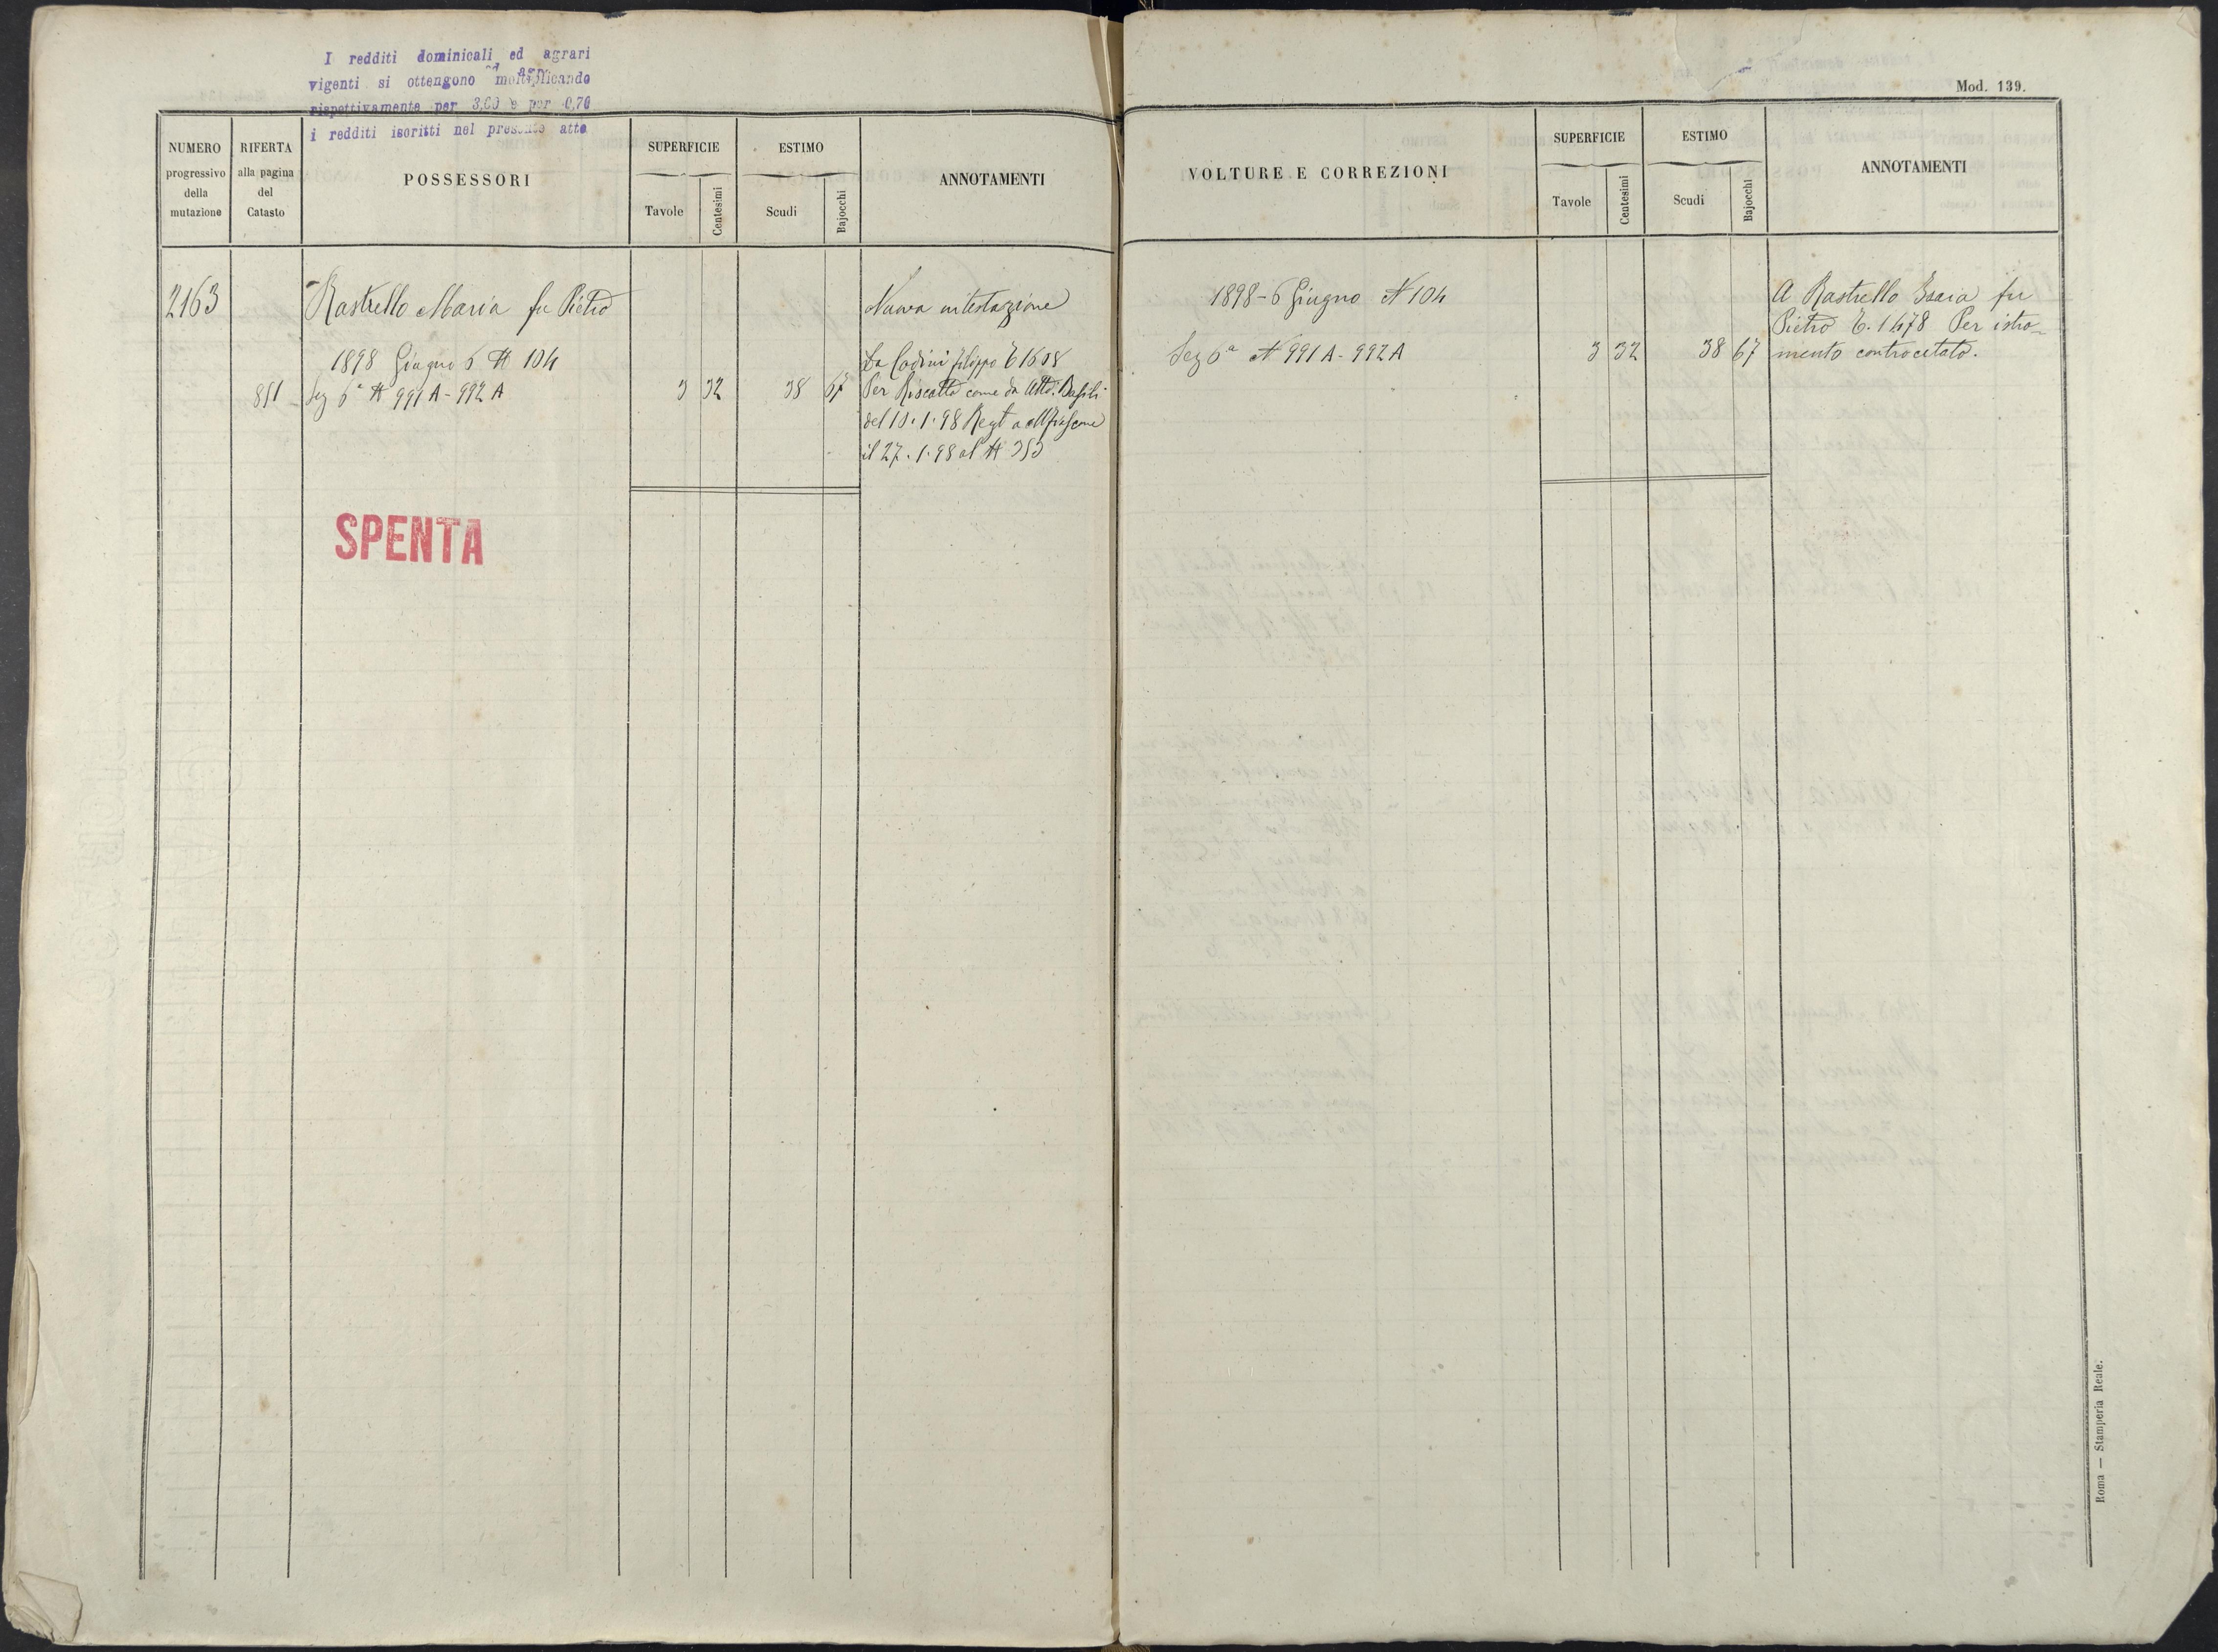 I redditi dominicali ed agrari
vigenti si ottengono moltiplicando
rispettivamente per 3,60 e per 0,70
i redditi iscritti nel presente atto
NUMERO
progressivo
della
mutazione
RIFERTA
alla pagina
del
Catasto
POSSESSORI
SUPERFICIE
Tavole
Centesimi
ESTIMO
Scudi
Bajocchi
ANNOTAMENTI
2163 Rastrello Maria fu Pietro Nuova intestazione
1898 Giugno 6 N 104 Da Codini Filippo E 1608
851 Sez 6ª N 991 A - 992 A 3 32 38 67 Per Riscatto come da Atto Basili
del 10.1.98 Regt a
il 27.1.98 al N 353
SPENTA
Mod. 139.
VOLTURE E CORREZIONI
SUPERFICIE
Tavole
Centesimi
ESTIMO
Scudi
Bajocchi
ANNOTAMENTI
1898 - 6 Giugno N 104 A Rastrello Isaia fu
Pietro E. 1478 Per istro-
Sez 6ª N 991 A - 992 A 3 32 38 67 mento controcitato.
Roma — Stamperia Reale.